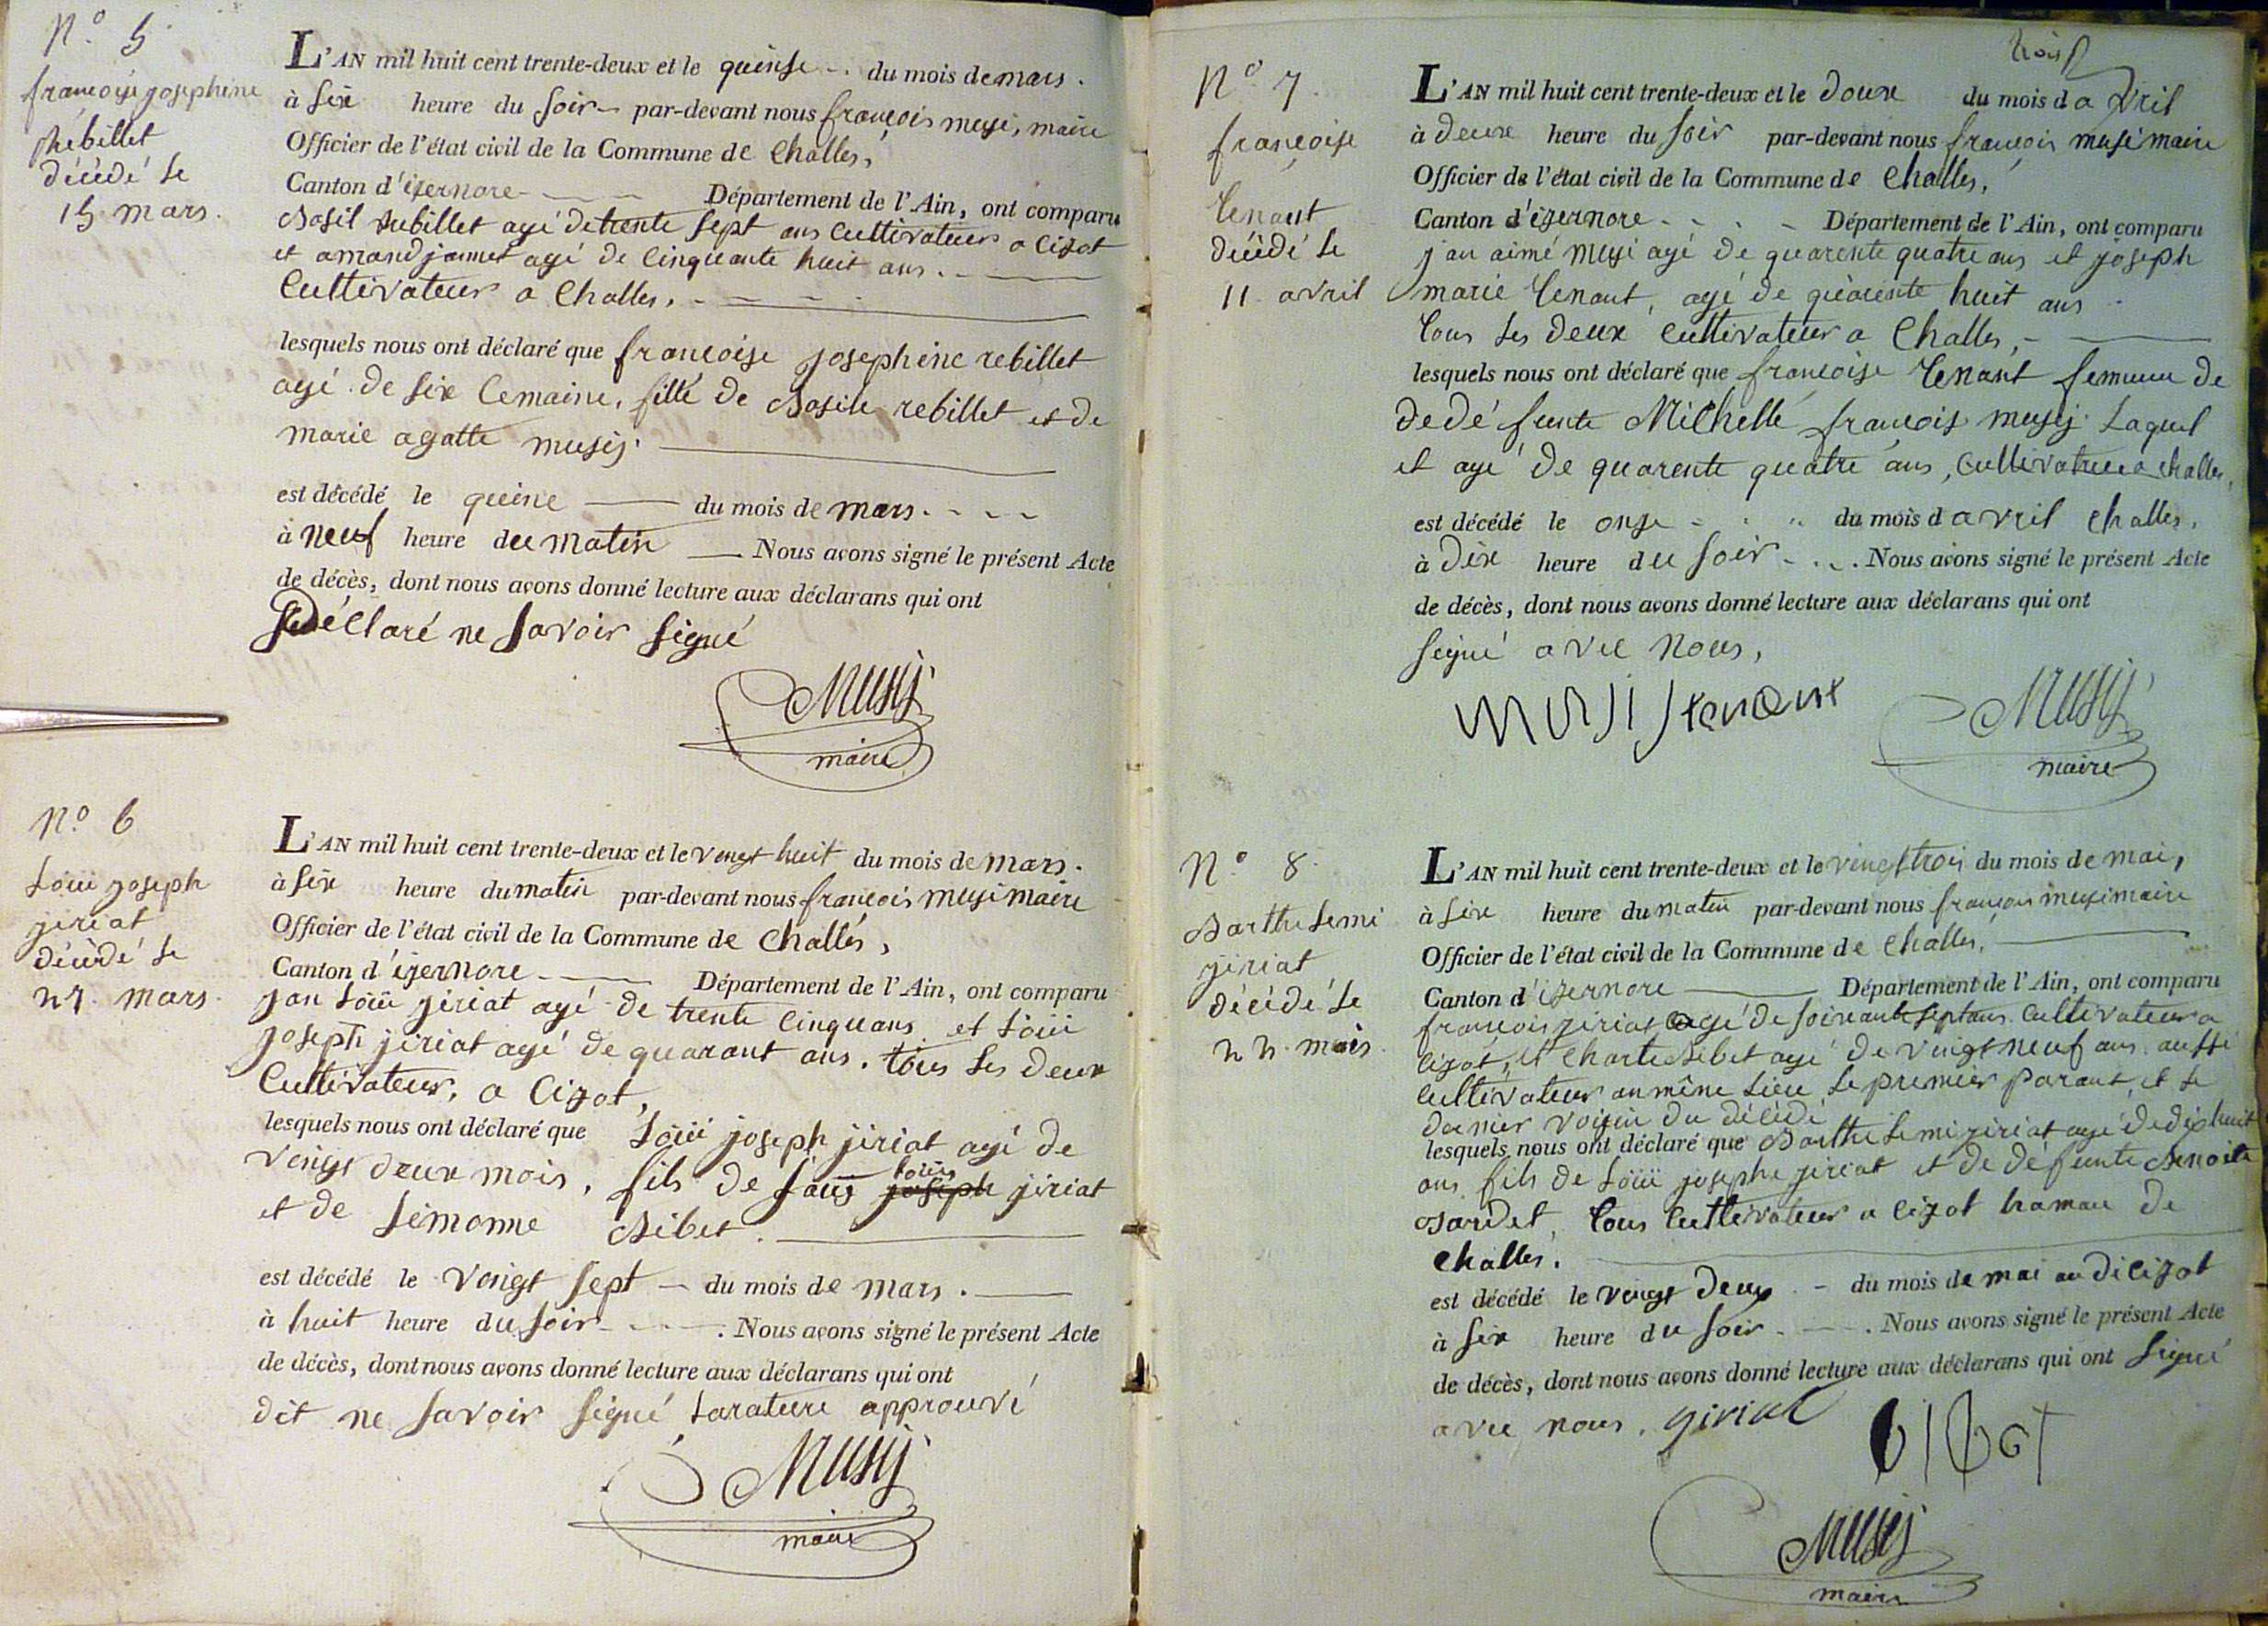 N.º 5
françoise josephine
rébillet
décédé le
15 mars.
L'AN mil huit cent trente-deux et le quinse du mois de mars.
à six heure du soir par-devant nous françois musi, maire
Officier de l'état civil de la Commune de Challes,
Canton d'izernore Département de l'Ain, ont comparu
Basil rebillet agé de trente sept ans cultivateur a Cizot
et amand jannet agé de Cinquante huit ans.
Cultivateur a Challes,
lesquels nous ont déclaré que françoise josephine rebillet
agé de six Semaine, fille de Basile rebillet et de
marie agatte musij.
est décédé le quine du mois de mars.
à neuf heure du matin Nous avons signé le présent Acte
de décès, dont nous avons donné lecture aux déclarans qui ont
déclaré ne savoir signé
Musij
maire
N.º 6
Loüi joseph
jiriat
décédé le
27. mars.
L'AN mil huit cent trente-deux et le vengt huit du mois de mars.
à six heure du matin par-devant nous françois musi maire
Officier de l'état civil de la Commune de Challes,
Canton d'izernore Département de l'Ain, ont comparu
jan Loüi jiriat agé de trente Cinq ans et Loüi
joseph jiriat agé de quarant ans. tous les deux
Cultivateur, a Cizot,
lesquels nous ont déclaré que Loüi joseph jiriat agé de
vengt deux mois, fils de joseph jiriat
et de Simonne Bibet.
est décédé le vengt sept du mois de mars.
à huit heure du soir. Nous avons signé le présent Acte
de décès, dont nous avons donné lecture aux déclarans qui ont
dit ne savoir signé, Larature approuvé
Musij
maire
N.º 7.
françoise
Tenant
décédé le
11 avril
L'AN mil huit cent trente-deux et le doux du mois d avril
à deux heure du soir par-devant nous françois musi maire
Officier de l'état civil de la Commune de Challes,
Canton d'izernore Département de l'Ain, ont comparu
jan aimé musi agé de quarente quatre ans et joseph
marie Tenant, agé de quarente huit ans
Tous les deux Cultivateur a Challes,
lesquels nous ont déclaré que françoise Tenant femme de
de défunte Michelle françois musij Laquel
et agé de quarente quatre ans, Cultivateur a Challes,
est décédé le onze du mois d avril Challes,
à dix heure du soir. Nous avons signé le présent Acte
de décès, dont nous avons donné lecture aux déclarans qui ont
signé avec nous,
musi tenant Musij
maire
N.º 8.
Barthelemi
jiriat
décédé le
22 mais.
L'AN mil huit cent trente-deux et le vingt trois du mois de mai,
à six heure du matin par-devant nous françois musi maire
Officier de l'état civil de la Commune de Challes,
Canton d'izernore Département de l'Ain, ont comparu
françois jiriat agé de soixante sept ans Cultivateur a
Cizot, et Charle Bibet agé de vingt neuf ans aussi
Cultivateur au même lieu le premier parant et le
dernier voisin du décédé
lesquels nous ont déclaré que Barthelemi jiriat agé de dix huit
ans fils de Loüi josephe jiriat et de défunte Benoite
Bardet, Tous Cultivateur a Cizot hamau de
Challes.
est décédé le vengt deux du mois de mai au di Cizot
à six heure du soir. Nous avons signé le présent Acte
de décès, dont nous avons donné lecture aux déclarans qui ont signé
avec nous, giriat bibet
Musij
maire